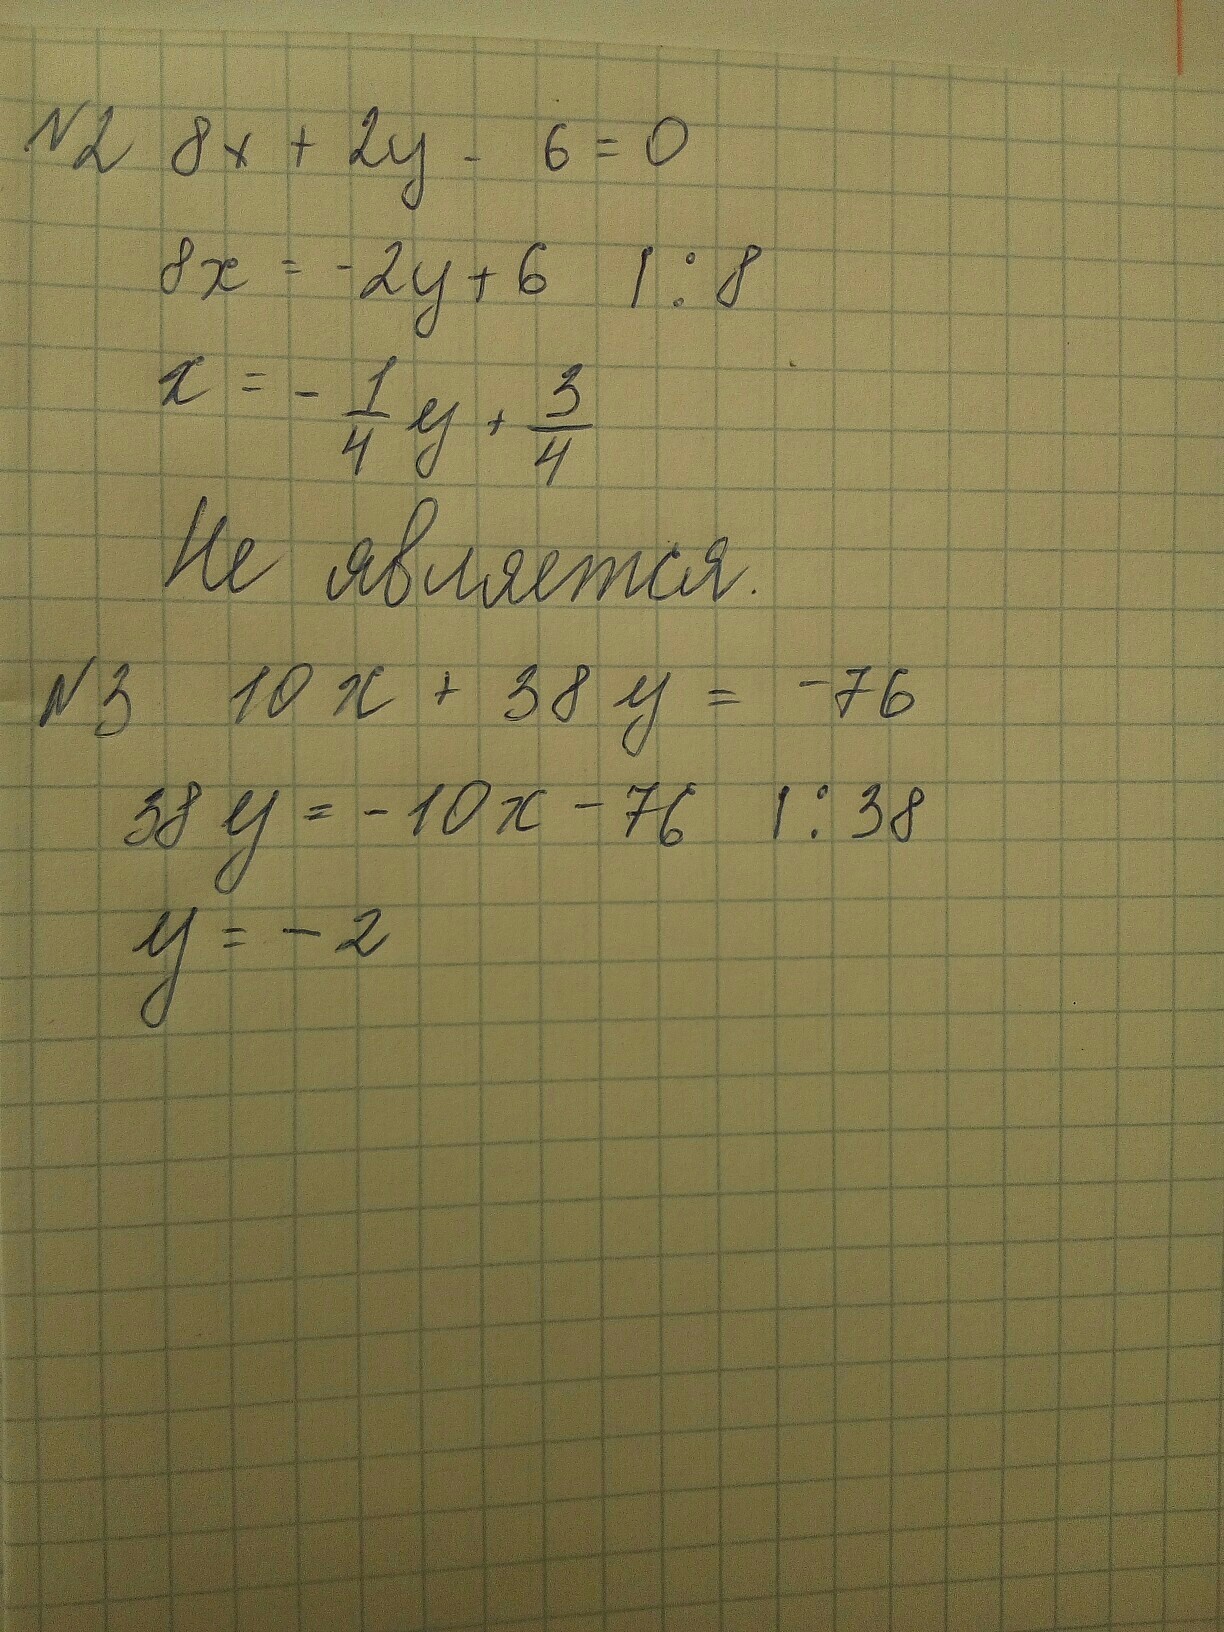 №2 8x + 2y - 6 = 0
8x = -2y + 6 |:8
x = - 1/4 y + 3/4
Не является.
№3 10x + 38y = -76
38y = -10x - 76 |:38
y = -2